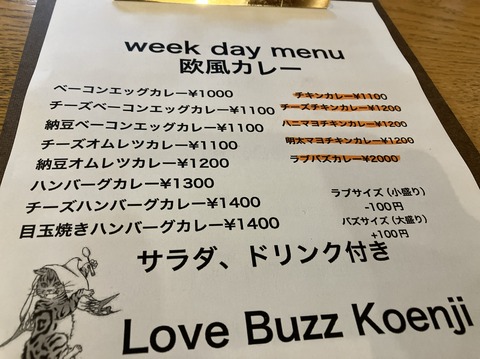 week day menu
欧風カレー
ベーコンエッグカレー¥1000
チーズベーコンエッグカレー¥1100
納豆ベーコンエッグカレー¥1100
チーズオムレツカレー¥1100
納豆オムレツカレー¥1200
ハンバーグカレー¥1300
チーズハンバーグカレー¥1400
目玉焼きハンバーグカレー¥1400
チキンカレー¥1100
チーズチキンカレー¥1200
ハニマヨチキンカレー¥1200
明太マヨチキンカレー¥1200
ラブバズカレー¥2000
ラブサイズ（小盛り）
-100円
バズサイズ（大盛り）
+100円
サラダ、ドリンク付き
Love Buzz Koenji